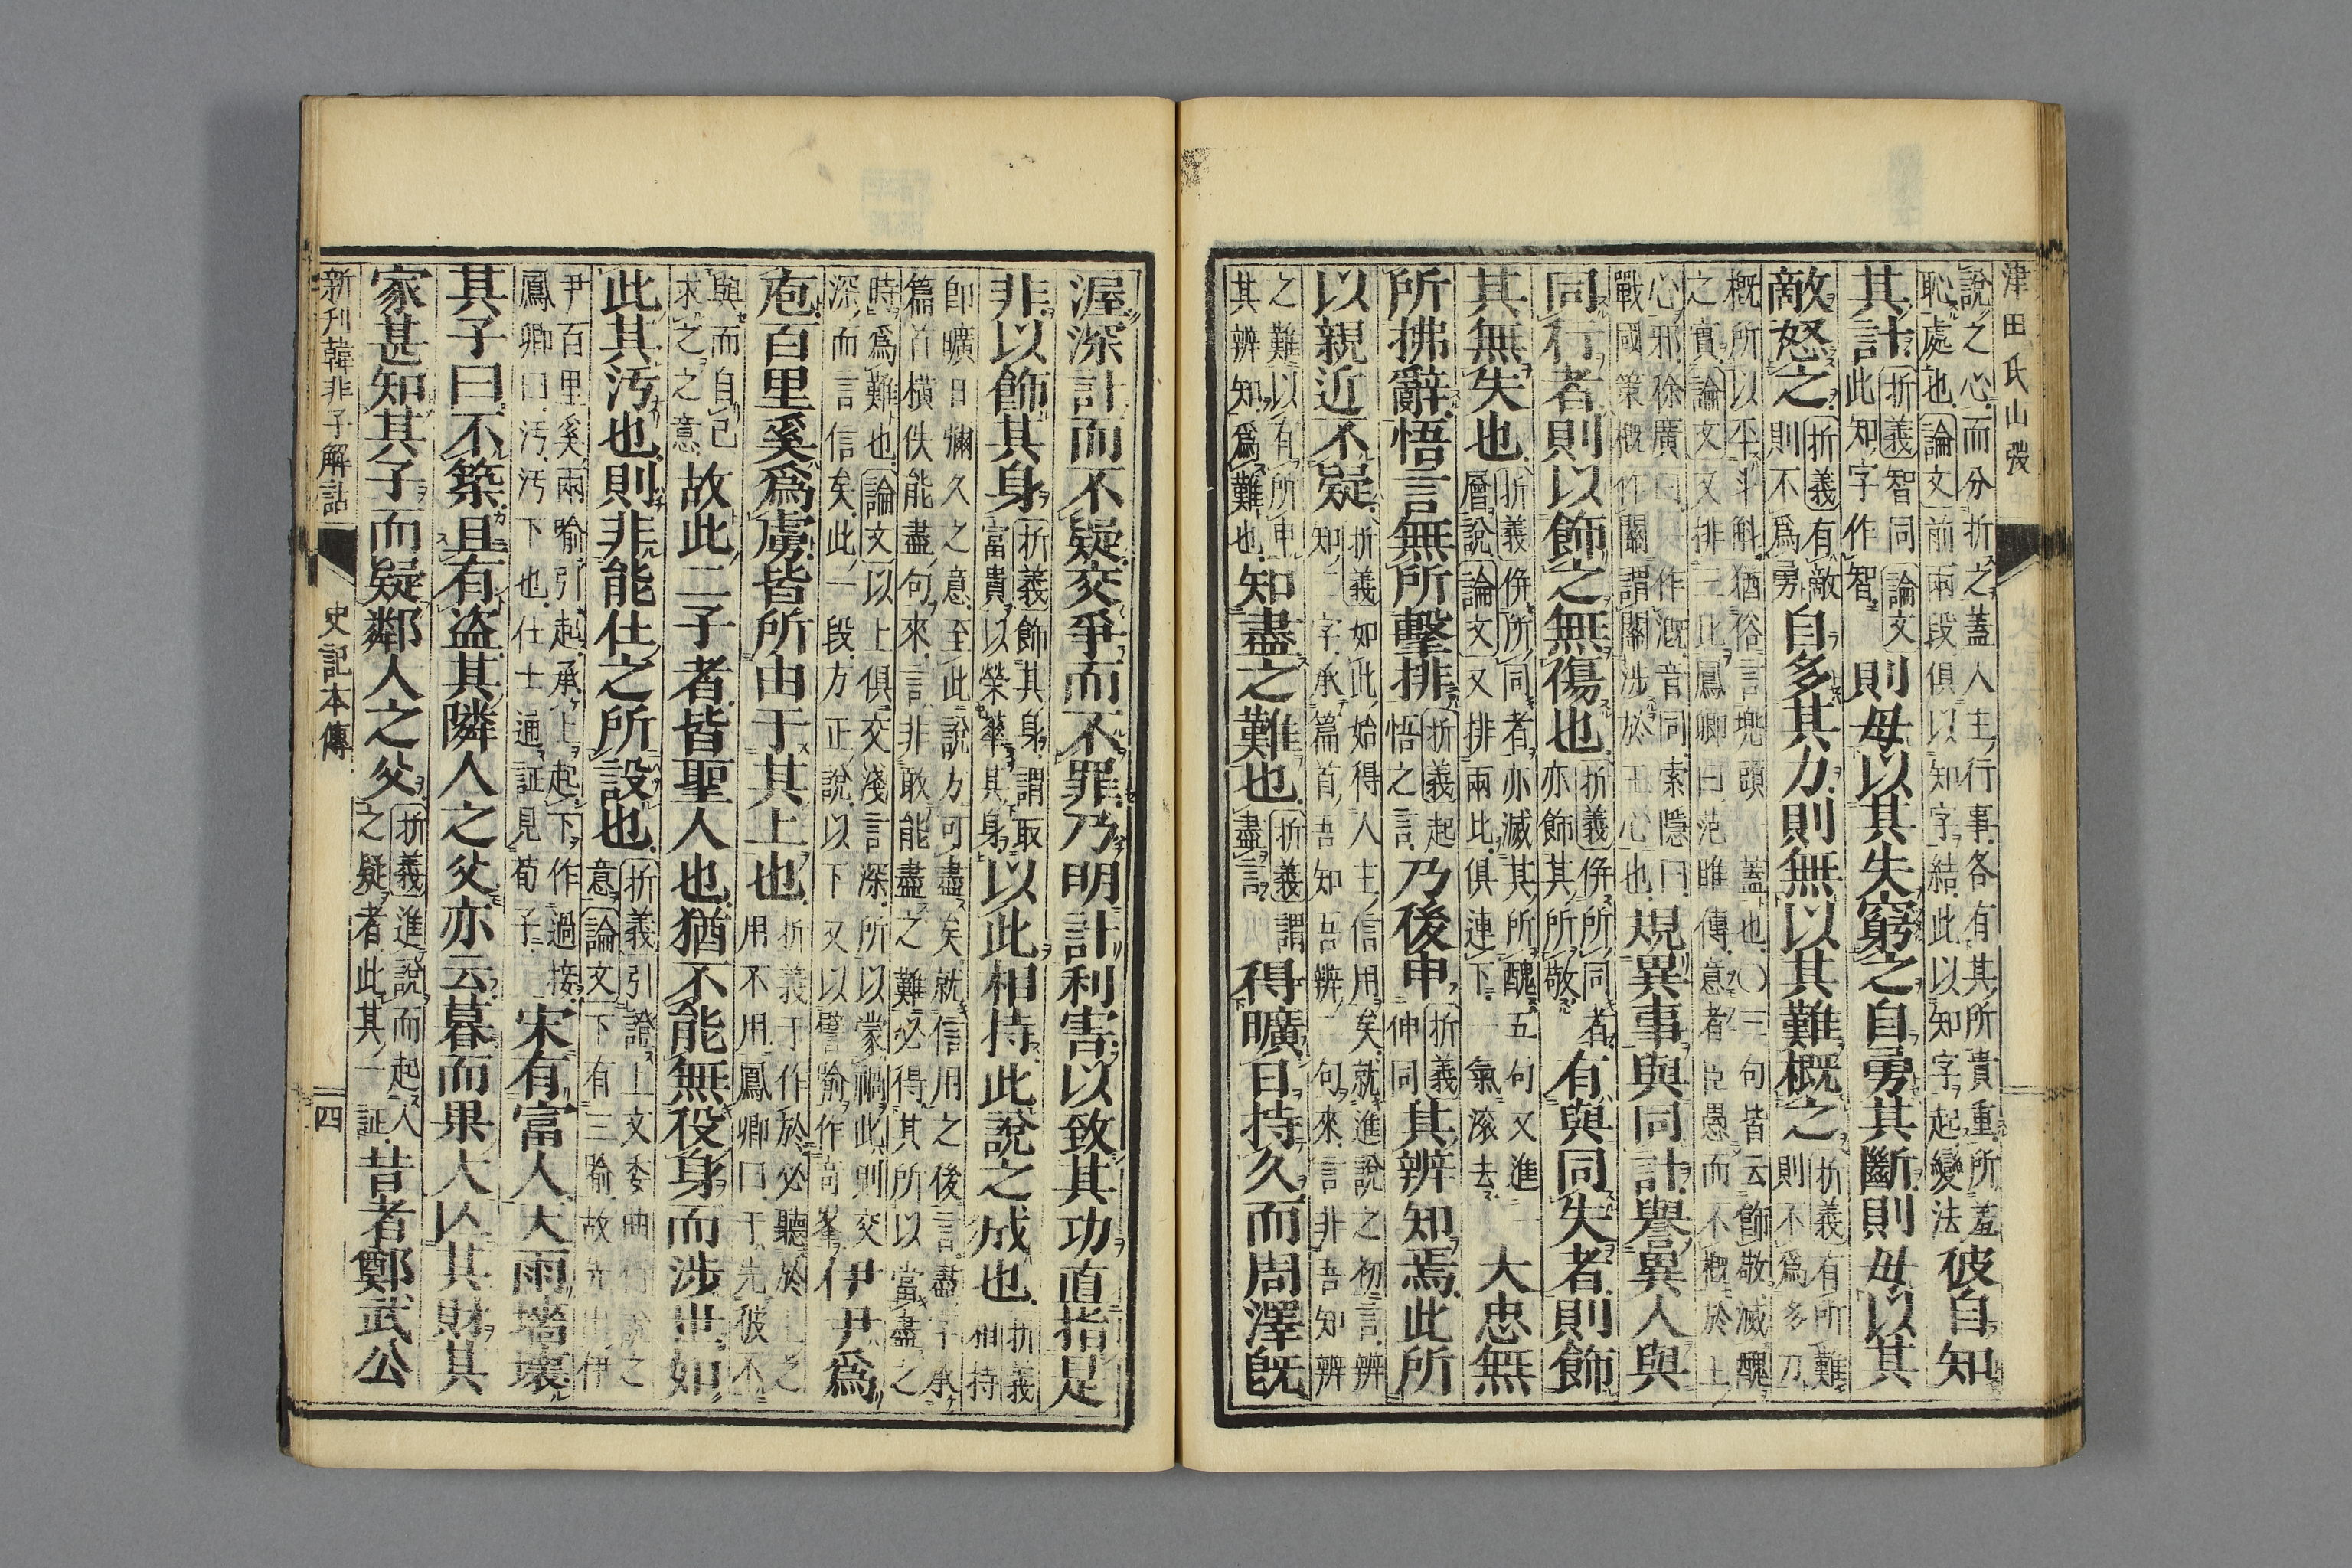 津田氏山㵎
說之心而分折之蓋人主行事各有其所貴重所羞
恥處也論文前兩段俱以知字結此以知字起變法
彼自知
其計
折義智同論文
此知字作智
則毋以其失窮之自勇其斷則毋以其
敵怒之
折義有敵
則不爲勇
自多其力則無以其難概之
折義有所難
則不爲多力
概所以平斗斛猶俗言兜頭蓋也〇三句皆云飾敬滅醜
之實論文文排三比鳳卿曰范雎傳意者臣愚而不概於王
心邪徐廣曰作溉音同索隱曰
戰國策概作關謂關涉於王心也
規異事與同計譽異人與
同行者則以飾之無傷也
折義倂所同者
亦飾其所敬
有與同失者則飾
其無失也
折義倂所同者亦滅其所醜五句又進一
層說論文又排兩比俱連下一氣滚去
大忠無
所拂辭悟言無所擊排
折義起
悟之言
乃後申
折義
伸同
其辨知焉此所
以親近不疑
折義如此始得人主信用矣就進說之初言辨
知二字承篇首吾知吾辨二句來言非吾知辨
之難以有所申
其辨知爲難也
知盡之難也
折義謂
盡言
得曠日持久而周澤旣
渥深計而不疑交爭而不罪乃明計利害以致其功直指是
非以飾其身
折義飾其身謂取
富貴以榮華其身
以此相持此說之成也
折義
相持
卽曠日彌久之意至此說力可盡矣就信用之後言盡字承
篇首橫佚能盡句來言非敢能盡之難必得其所以當盡之
時爲難也論文以上俱交淺言深所以蒙禍此則交
深而言信矣此一段方正說以下又以譬喻作高峯
伊尹爲
庖百里奚爲虜皆所由于其上也
折義于作於必聽於上之
用不用鳳卿曰于先彼不
與而自己
求之之意
故此二子者皆聖人也猶不能無役身而涉世如
此其汚也則非能仕之所設也
折義引證上文委曲行說之
意論文下有三喻故先出伊
尹百里奚兩喻引起承上起下作過接
鳳卿曰汚汚下也仕士通証見荀子
宋有富人天雨墻壞
其子曰不築且有盜其隣人之父亦云暮而果大亡其財其
家甚知其子而疑鄰人之父
折義進說而起人
之疑者此其一証
昔者鄭武公
新刋韓非子解詁
史記本傳
四